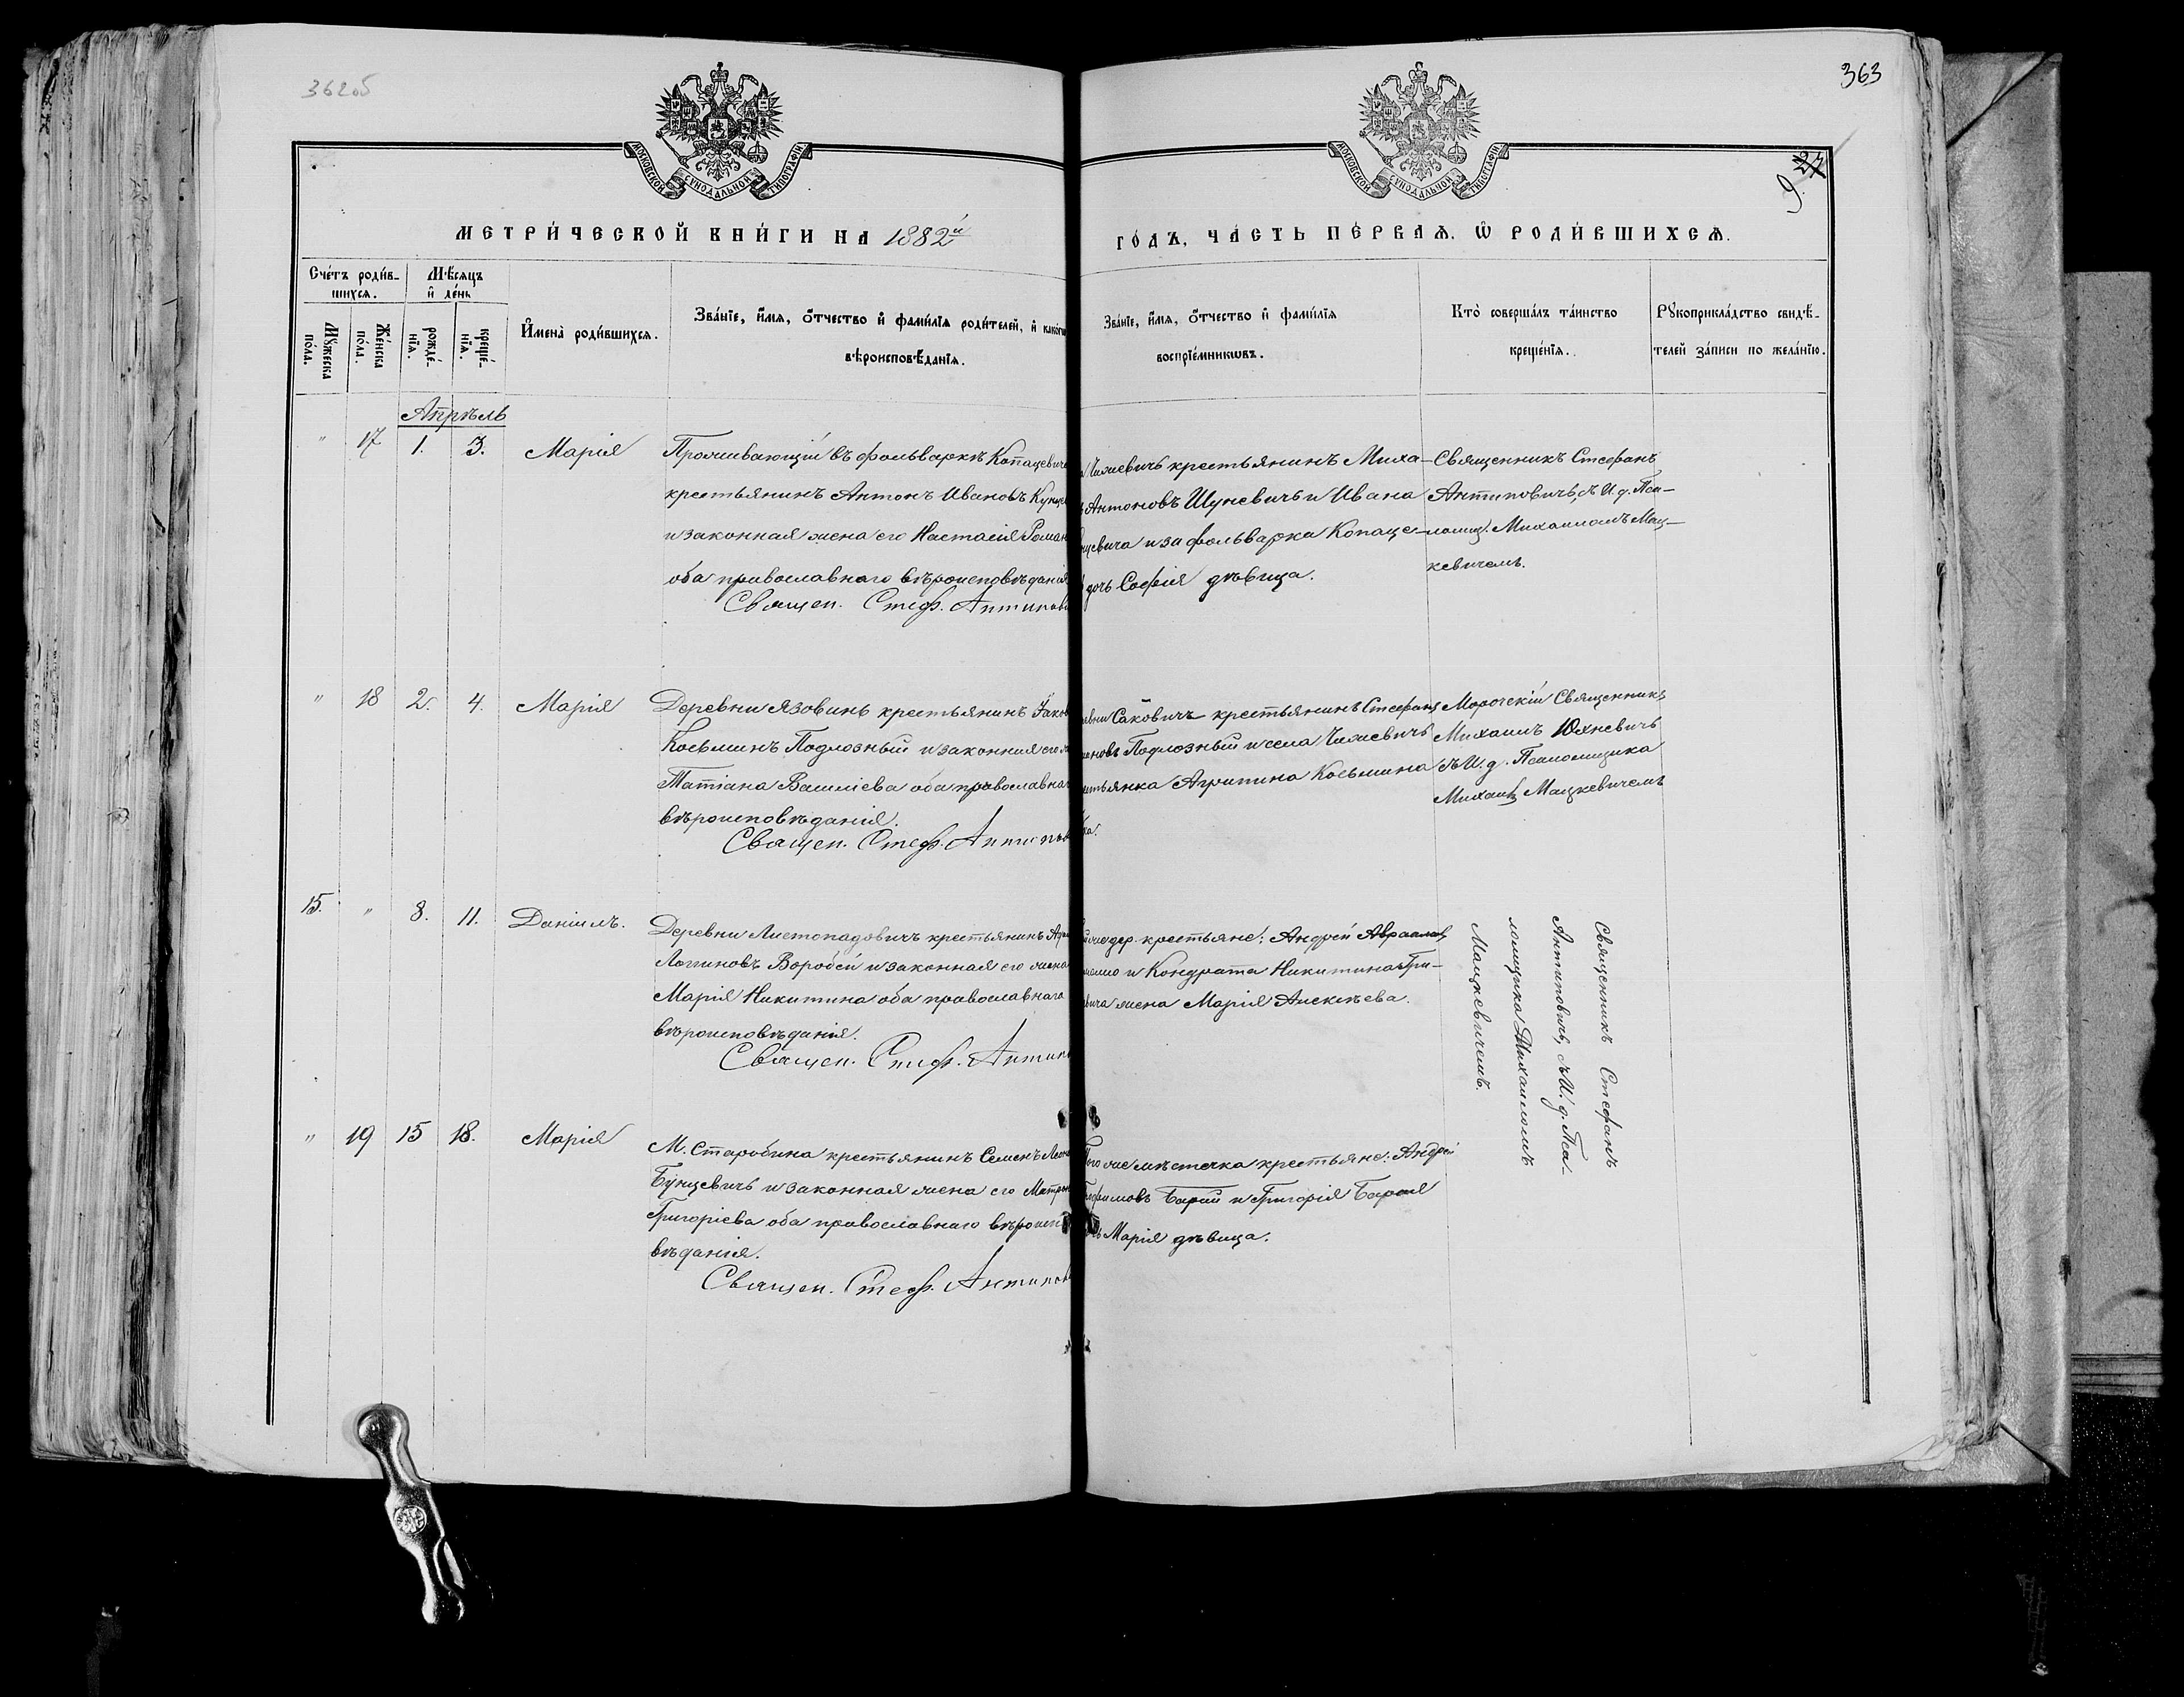 362об
363
МОСКОВСКОЙ СѴНОДАЛЬНОЙ ТИПОГРАФІИ
МОСКОВСКОЙ СѴНОДАЛЬНОЙ ТИПОГРАФІИ
9.
МЕТРИ́ЧЕСКОЙ КНИ́ГИ НА 1882й
ГО́ДЪ, ЧА́СТЬ ПЕ́РВАѦ, Ѡ РОДИ́ВШИХСѦ.
Сче́тъ роди́в-
шихсѧ.
Мѣ́сяцъ
и де́нь
Мꙋ́жеска по́ла.
Же́нска по́ла.
рожде́-
нїѧ.
креще́-
нїѧ.
И҆мена̀ роди́вшихсѧ.
Зва́нїе, и҆́мѧ, ѻ҆́тчество и҆ фамѝлїѧ роди́телей, и҆ како́гѡ
вѣроисповѣ́данїѧ.
Зва́нїе, и҆́мѧ, ѻ҆́тчество и҆ фами́лїѧ
воспрїе́мникѡвъ.
Кто̀ соверша́лъ та́инство
креще́нїѧ.
Рꙋкоприкла́дство свидѣ́-
телей за́писи по жела́нїю.
Апрѣль
" 17 1. 3. Марія
Проживающій въ фольваркѣ Копацевич
крестьянинъ Антонъ Ивановъ Кунце
и законная жена его Настасія Роман
оба православнаго вѣроисповѣданія
Священ. Стеф. Антипов
Чижевичъ крестьянинъ Миха-
Антоновъ Шуневичъ и Ивана
цевича изъ фольварка Копаце-
дочь Софія дѣвица.
Священникъ Стефанъ
Антиповичъ, съ И. д. Пса-
ломщ. Михаиломъ Мац-
кевичемъ.
" 18 2. 4. Марія
Деревни Язовинь крестьянинъ Іаков
Косьминъ Подлозный и законная его
Татіана Василіева оба православнаг
вѣроисповѣданія.
Священ. Стеф. Антипов
Саковичъ крестьянинъ Стефанъ
Подлозный и села Чижевичъ
Агрипина Косьмина
Морочскій Священникъ
Михаилъ Юхневичъ
съ И. д. Псаломщика
Михаил Мацкевичемъ
15. " 8. 11. Даніилъ.
Деревни Листопадовичъ крестьянинъ
Логиновъ Воробей и законная его жена
Марія Никитина оба православнаго
вѣроисповѣданія.
Священ. Стеф. Антип
же дер. крестьяне: Андрей Авраамов
и Кондрата Никитина Гри-
вича жена Марія Алексѣева.
Священникъ Стефанъ
Антиповичъ, съ И. д. Пса-
ломщика Михаиломъ
Мацкевичемъ.
" 19 15 18. Марія
М. Старобина крестьянинъ Семенъ Леон
Бунцевичъ и законная жена его Матрон
Григоріева оба православнаго вѣроиспо
вѣданія.
Священ. Стеф. Антипов
Того же мѣстечка крестьяне: Андрей
Барай и Григорія Барая
Марія дѣвица.